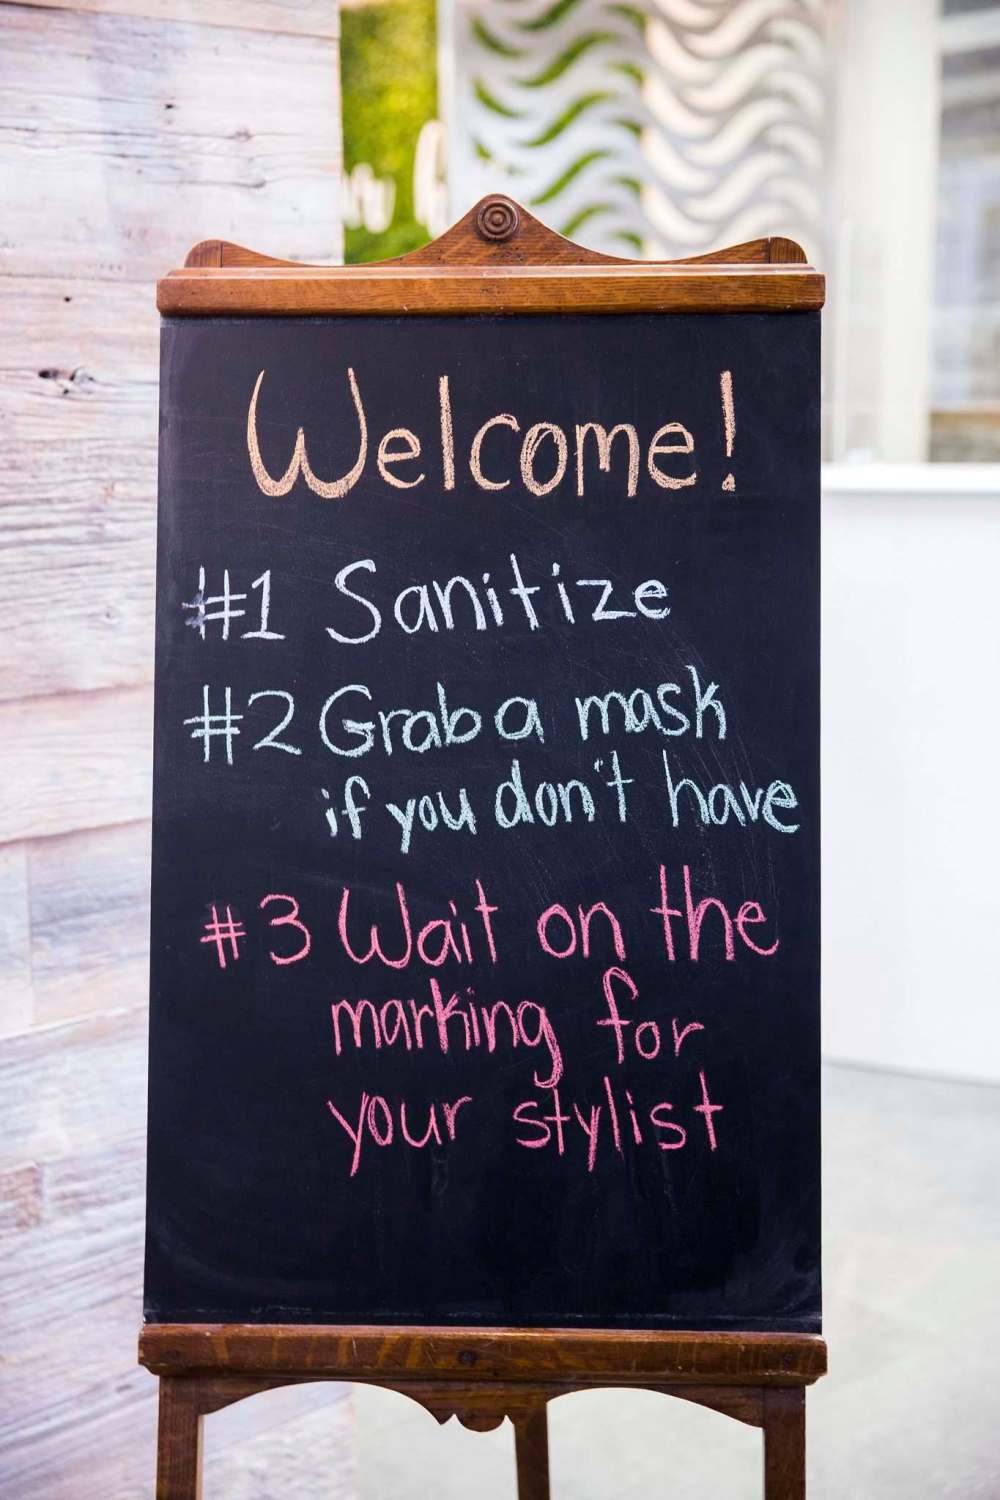 Welcome!
#1 Sanitize
#2 Grab a mask
if you don't have
#3 Wait on the
marking for
your stylist